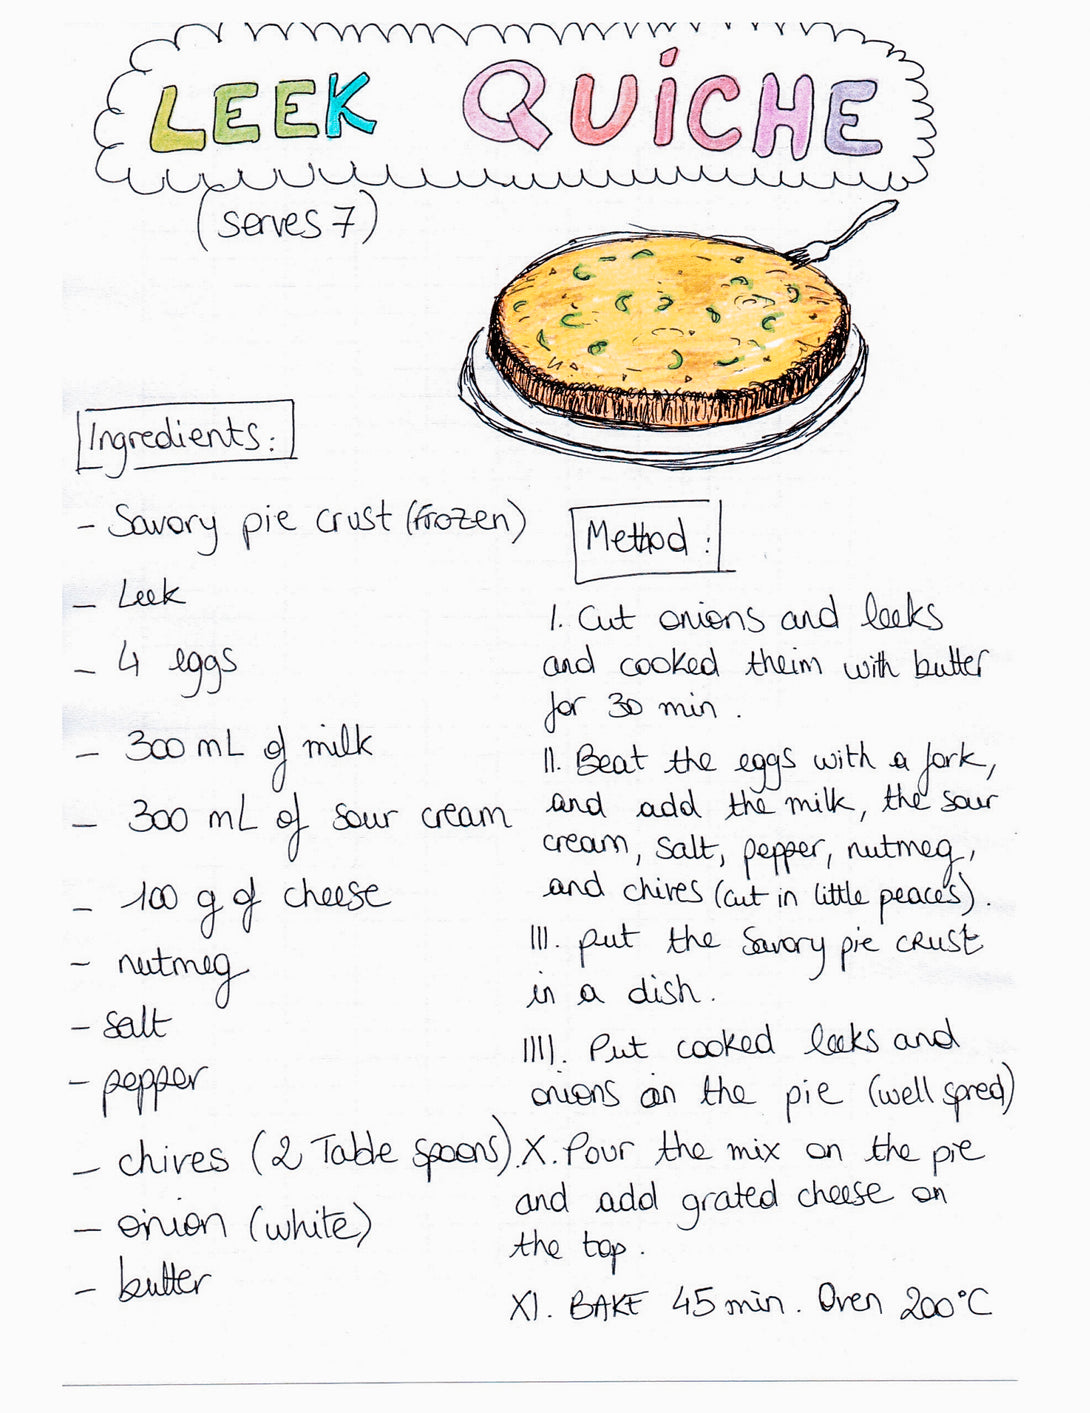 LEEK QUICHE
(serves 7)
Ingredients:
- Savory pie crust (frozen)
- Leek
- 4 eggs
- 300 mL of milk
- 300 mL of sour cream
- 100 g of cheese
- nutmeg
- salt
- pepper
- chives (2 Table spoons)
- onion (white)
- butter
Method:
I. Cut onions and leeks
and cooked theim with butter
for 30 min.
II. Beat the eggs with a fork,
and add the milk, the sour
cream, salt, pepper, nutmeg,
and chives (cut in little peaces).
III. put the Savory pie crust
in a dish.
IIII. Put cooked leeks and
onions on the pie (well spred)
X. Pour the mix on the pie
and add grated cheese on
the top.
XI. BAKE 45 min. Oven 200°C